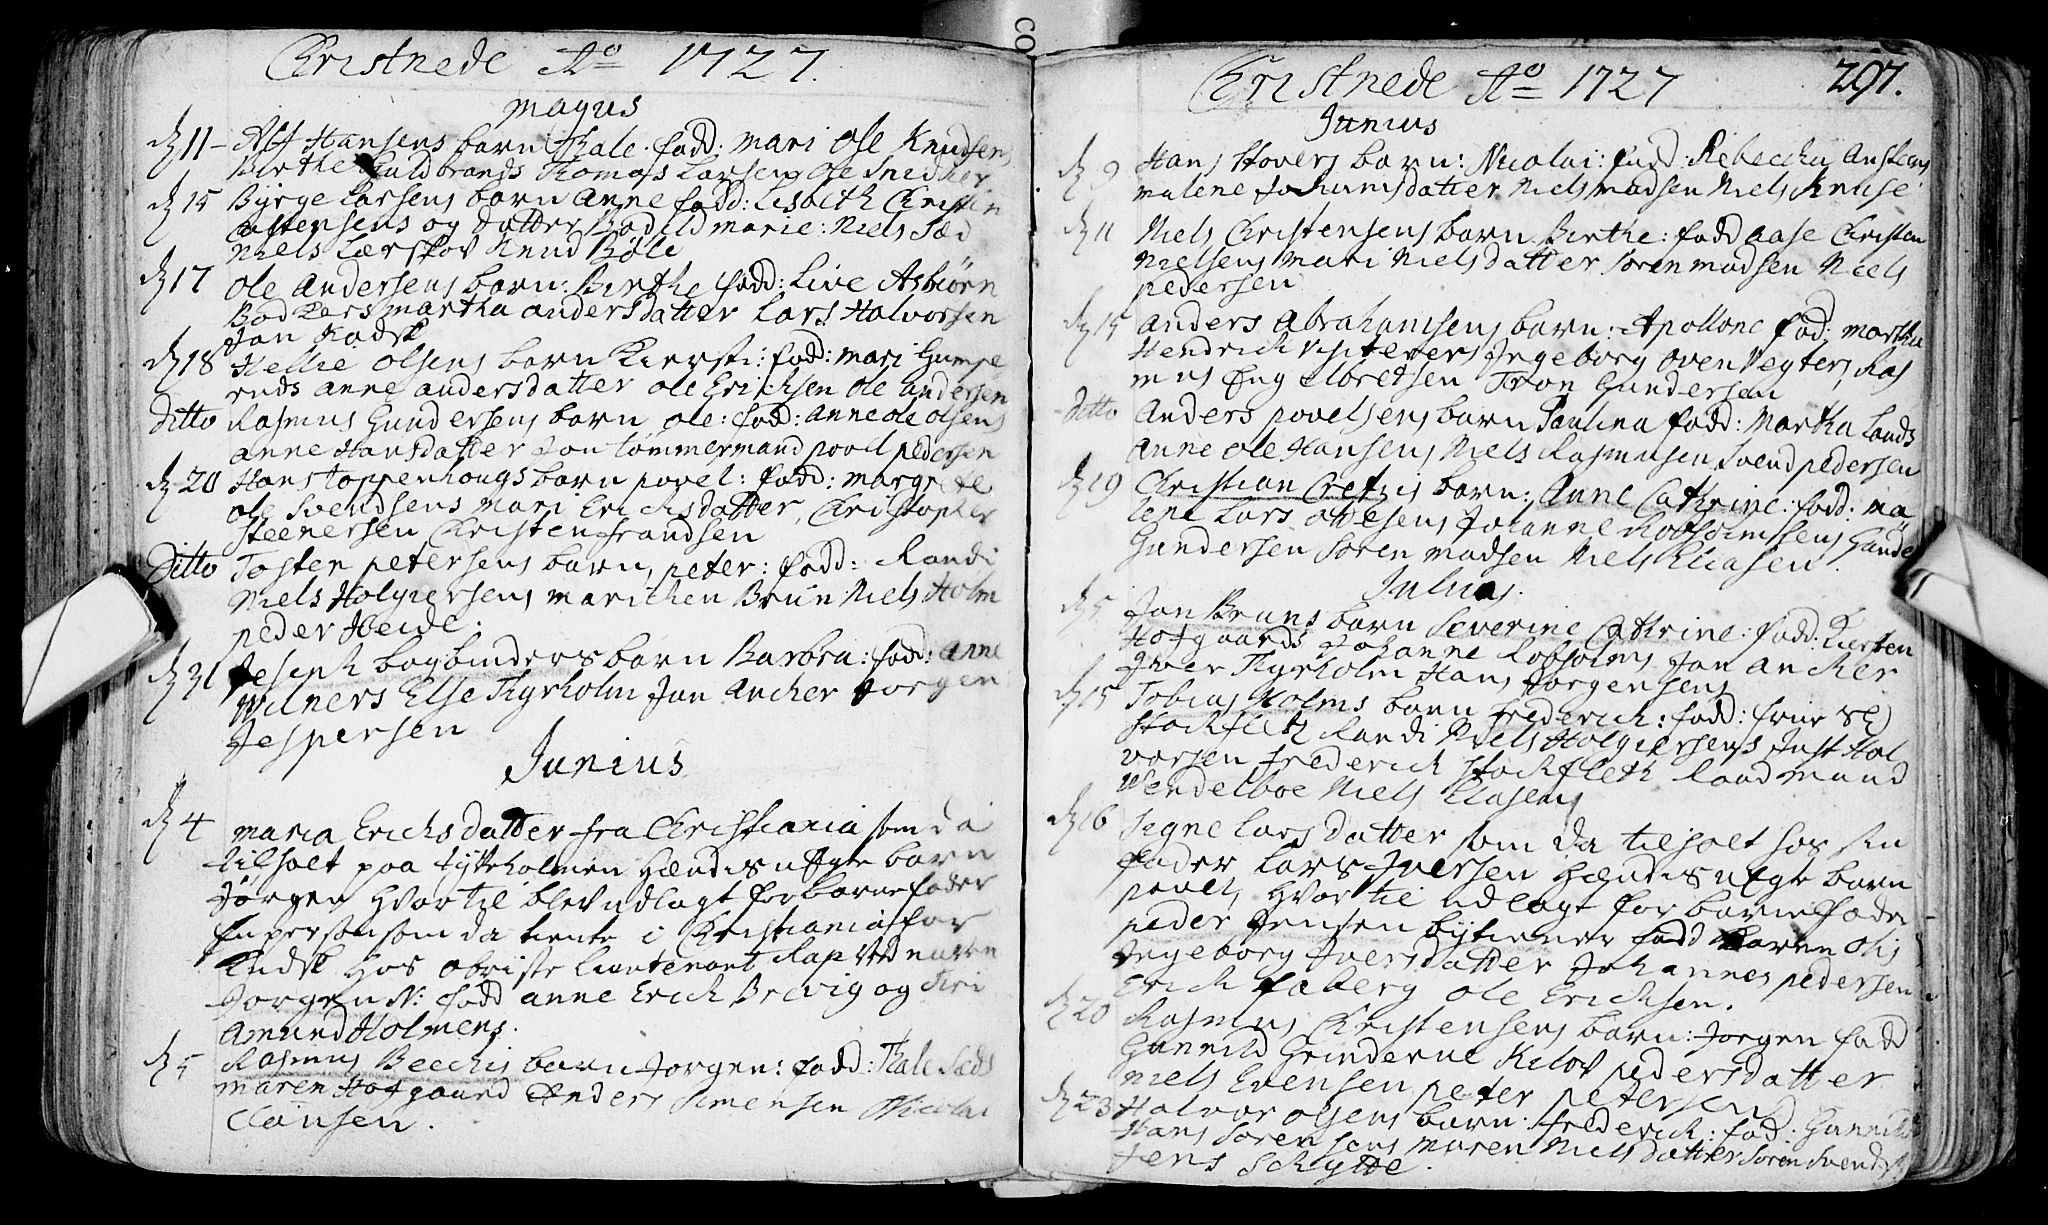 Christnede Ao 1727.
Mayus
d 11 – Alf Hansens barn Thale. fadd: Mari Ole Knudsens
Birthe Guldbrands Thomas Larsen Ole Snedker
d 15 Byrge Larsens barn Anne fadd: Lisbeth Christen
Mortensens og datter Bodild Marie: Niels Sæd
Niels Lærskov Knud Bøle
d 17 Ole Andersens barn: Birthe fadd: Live Asbiørn
Bødkers Martha Andersdatter Lars Halvorsen
Jan Kadsk
d 18 Hellie Olsens barn Kiersti: fadd: Mari Gumpe
ruds Anne Andersdatter Ole Erichsen Ole Andersen
Ditto Rasmus Gundersens barn Ole: fadd: Anne Ole Olsens
Anne Hansdatter Jon Tømmermand Povel Pedersen
d 20 Hans Toppenhougs barn Povel: fadd: Margrete
Ole Svendsens Mari Erichsdatter, Christopher
Steenersen Christen Frandsen
Ditto Tosten Petersens barn, Peter: fadd: Randi
Niels Holgiersens Marichen Brun Niels Holm
Peder Heide.
d 31 Joseph bogbinders barn Barbra: fadd: Anne
Wilners Else Thyrholm Jan Ancher Jorgen
Jespersen
Junius
d 4 Maria Erichsdatter fra Christiania som da
tilholt paa Tytteholmen hændis uægte barn
Jørgen hvortil blev udlagt for barnefader
En person som da tiente i Christiania for
Kudsk hos Obriste Lieutenant Rap ved navn
Jorgen N: fadd Anne Erich Brevig og Siri
Amund Holmens.
d 5 Rasmus Becchis barn Jorgen: fadd: Thale Sæds
Maren Hofgaard Anders Simensen Nicolai
Clausen.
Christnede Ao 1727 297.
Junius
d 9 Hans Hovers barn: Nicolai: fadd: Rebeccha
Malene Johansdatter Niels Madsen Niels Knuse
d 11 Niels Christensens barn Birthe: fadd Aase Christen
Nielsens Mari Nielsdatter Soren Madsen Niels
Pedersen
d 15 Anders Abrahamsens barn: Apollone fad: Martha
Hendrich Visiterers Ingeborg Oven Vegters, Ras
mus Eng Tron Gundersen
Ditto Anders Povelsens barn Paulina fadd: Martha Lands
Anne Ole Hansens Niels Rasmusen Svend Pedersen
d 19 Christian Cretzis barn: Anne Cathrine: fadd: Ma
lene Lars Ovesens Johanne Gunde
Gundersen Soren Madsen Niels Eliasen.
Julius.
d 5 Jan Bruns barn Severine Cathrine: fadd: Kirsten
Hofgaards Johanne Robholms Jan Ancher
Iver Thyrholm Hans Jorgensens
d 15 Tobias Holms barn Frederich: fadd: frue Sl)
Stochfletz Randi Niels Holgiersens Just Hal
vorsen Frederich Stochfleth Raadmand
Wendelboe Niels Elisens
d 16 Signe Larsdatter som da tilholt hos sin
fader Lars Iversen hændis uægte barn
Povel, hvortil udlagt for barnefader
Peder Jensen bytiener fadd Karen Olis
Ingeborg Iversdatter Johannes Pedersen
Erich Faberg Ole Erichsen.
d 20 Rasmus Christensens barn: Jorgen fadd
Gunnild Grinderne Kilov Pedersdatter
Niels Evensen Peter Petersen
d 23 Halvor Olsens barn: Frederich: fad: Gunnild
Hans Sorensens Maren Nielsdatter Soren Svends
Jens Schytte.